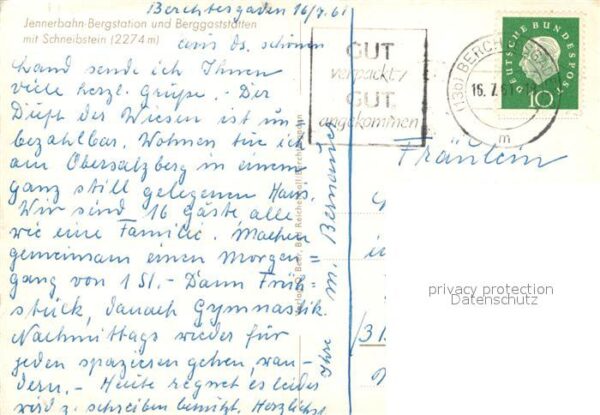 Berchtesgaden 16/7. 61
Jennerbahn-Bergstation und Berggaststätten
mit Schneibstein (2274 m)
aus ds. schönen
Land sende ich Ihnen
viele herzl. Grüße. - Der
Duft der Wiesen ist un=
bezahlbar. Wohnen tue ich
am Obersalzberg in einem
ganz still gelegenen Haus.
Wir sind 16 Gäste, alle
wie eine Familie. Machen
gemeinsam einen Morgen=
gang von 1 St. - Dann Früh=
stück, danach Gymnastik.
Nachmittags wieder für
jeden spazieren gehen, wan-
dern. - Heute regnet es leider
wird z. schreiben benützt. Herzlichst
Ihre M.
GUT
verpackt
GUT
angekommen
(13b) BERCHTESGADEN
16. 7. 61
m
DEUTSCHE BUNDESPOST
10
Fräulein
31
privacy protection
Datenschutz